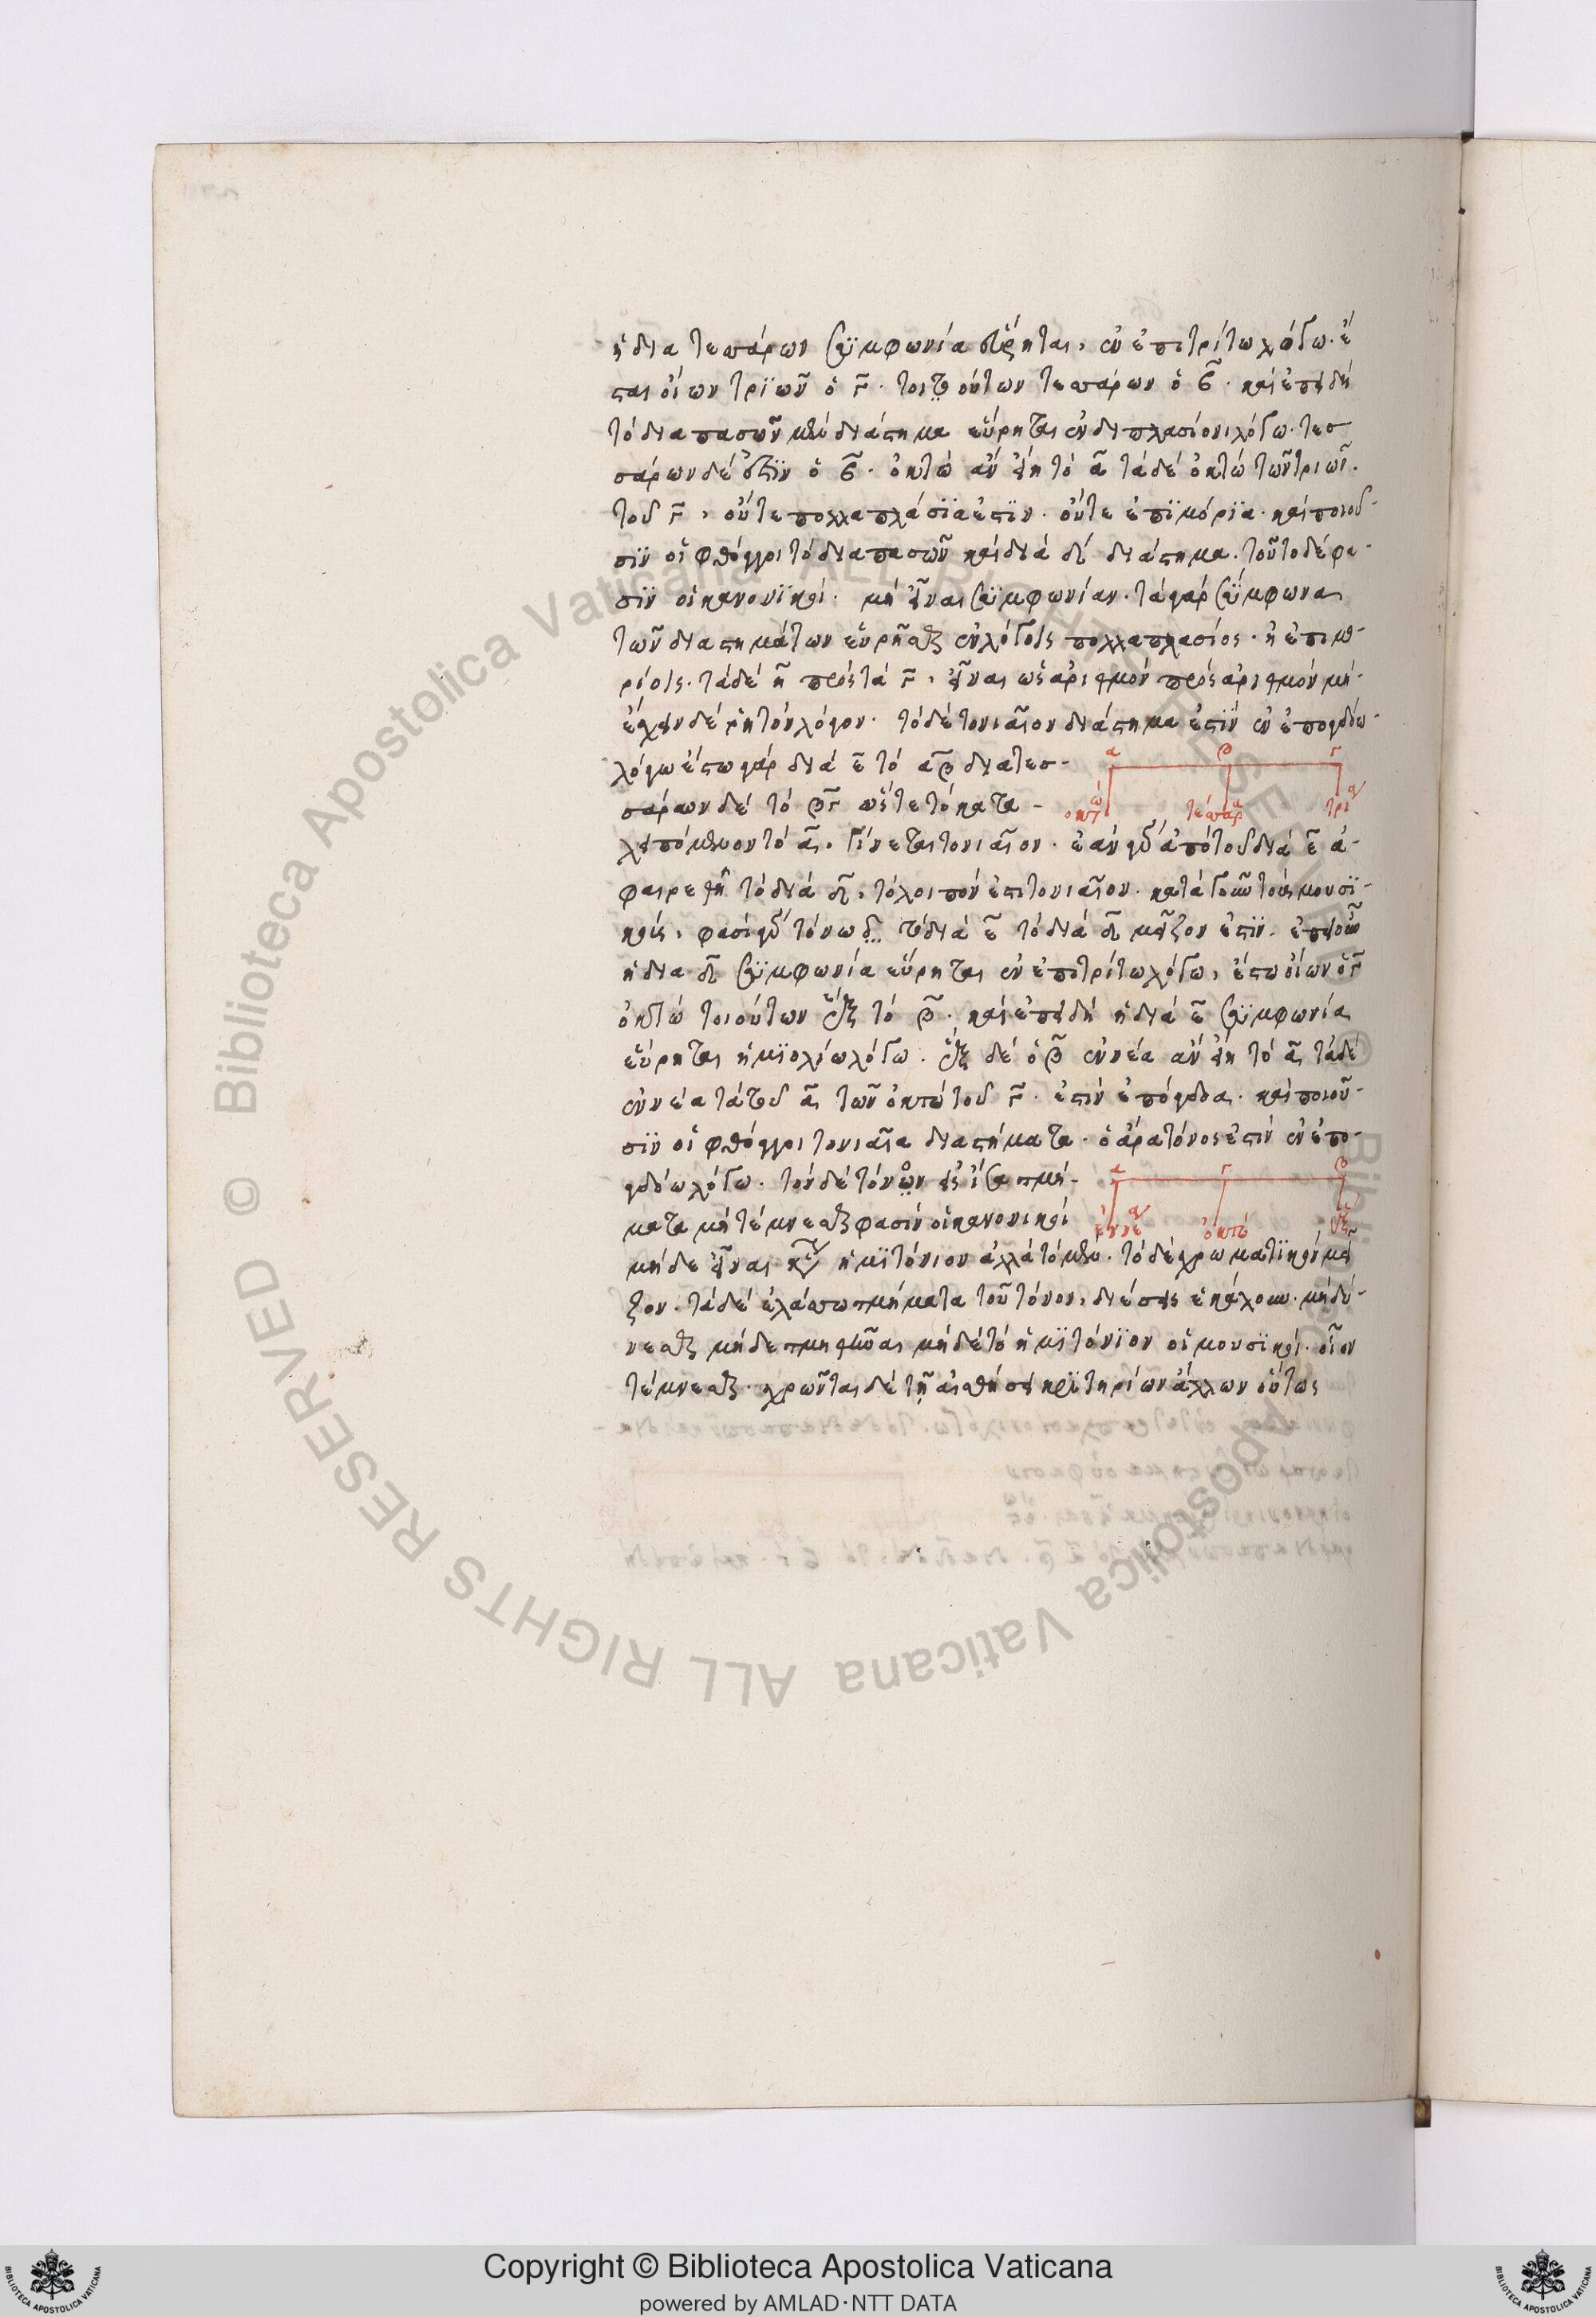 ἡ δια τεσσάρων συμφωνία εὕρηται, ἐν ἐπιτρίτω λόγω. ἔ
σται οἵων τριῶν ὁ γ̄. τοιούτων τεσσάρων ὁ β̄. καὶ ἐπειδὴ
τὸ δια πασῶν μὲν διάστημα εὕρηται ἐν διπλασίονι λόγω. τεσ
σάρων δέ ἐστὶν ὁ β̄. ὀκτὼ ἂν εἴη τὸ ᾱ τὰ δὲ ὀκτὼ τῶν τριῶν.
τοῦ γ̄, οὔτε πολλαπλάσϊα ἐστϊν. οὔτε ἐπϊμόρϊα. καὶ ποιοῦ-
σϊν οἱ φθόγγοι τὸ διαπασῶν καὶ διὰ δ̄ διάστημα. τοῦτο δέ φα-
σϊν οἱ κανονϊκοὶ. μὴ εἶναι συμφωνίαν. τὰ γὰρ σύμφωνα
τῶν διαστημάτων εὑρῆσθαι ἐν λόγοις πολλαπλασίοις. ἢ ἐπιμο-
ρίοις. τὰ δὲ η̄ πρὸς τὰ γ̄, εἶναι ὡς ἀριθμὸν πρὸς ἀριθμὸν μὴ-
ἔχειν δὲ ῥητὸν λόγον. τὸ δὲ τονιαῖον διάστημα ἐστϊν ἐν ἐπογδόω-
λόγω ἔστω γὰρ διὰ ε̄ τὸ αβ̄ διατεσ-
σάρων δὲ τὸ βγ̄ ὥστε τὸ κατα-
α β γ
ὀκτώ τέσσαρα τρία
λειπόμενον τὸ ᾱ. γίνεται τονιαῖον. ἐὰν γὰρ ἀπὸ τοῦ διὰ ε̄ ἀ-
φαιρεθῆ τὸ διὰ δ̄, τὸ λοιπόν ἐστι τονιαῖον. κατὰ γοῦν τοὺς μουσϊ-
κούς, φασὶ γὰρ τόνω τὸ διὰ ε̄ τὸ διὰ δ̄ μεῖζον ἐστϊν. ἐπεὶ οὖν
ἡ δια δ̄ συμφωνία εὕρηται ἐν ἐπιτρίτω λόγω, ἔστω οἵων ὁ γ̄
ὀκτὼ τοιούτων ἕξ τὸ β̄. καὶ ἐπειδὴ ἡ διὰ ε̄ συμφωνία
εὕρηται ἡμϊολίω λόγω. ἕξ δέ ὁ β̄ ἐννέα ἂν εἴη τὸ ᾱ τὰ δὲ
ἐννέα τὰ τοῦ ᾱ τῶν ὀκτὼ τοῦ γ̄. ἐστὶν ἐπόγδοα. καὶ ποιοῦ-
σϊν οἱ φθόγγοι τονιαῖα διαστήματα. ὁ ἄρα τόνος ἐστὶν ἐν ἐπο-
γδόω λόγω. τὸν δὲ τόνον εἰς ἴσα τμή-
ματα μὴ τέμνεσθαι φασὶν οἱ κανονικοὶ
α γ β
ἐννέα ὀκτώ ἕξ
μήδε εἶναι ἡμϊτόνιον ἀλλὰ τὸ μὲν. τὸ δὲ χρωματϊκὸν μεῖ
ζον. τὰ δὲ ἐλάσσω τμήματα τοῦ τόνου, διέσεις ἐκάλουν. μὴ δύ-
νεσθαι μήδε τμηθῆναι μὴ δὲ τὸ ἡμϊτόνϊον οἱ μουσϊκοὶ. οἷον
τέμνεσθαι. χρῶνται δὲ τῆ αἰσθήσει κρϊτηρίω ἀλλων οὕτως